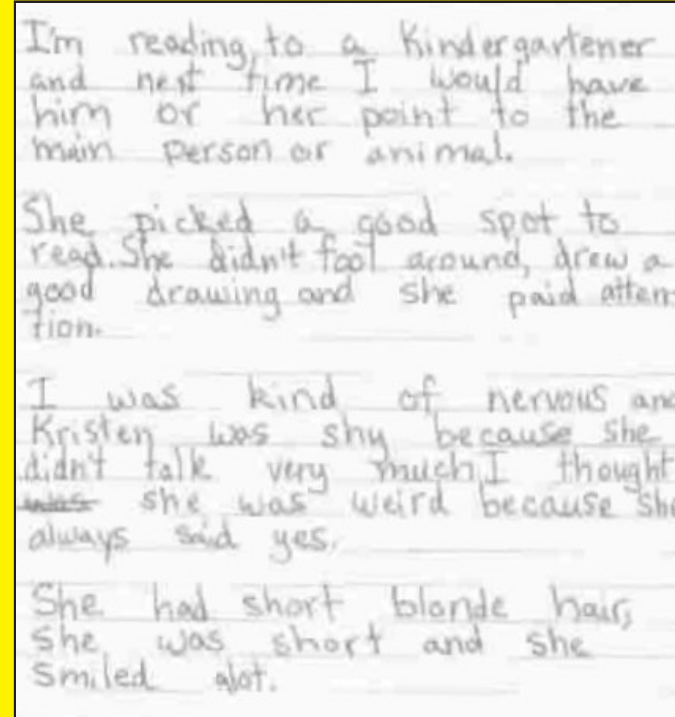 I'm reading, to a Kindergartener
and nest time I would have
him or her point to the
main person or animal.
She picked a good spot to
read. She didn't fool around, drew a
good drawing and she paid atten
tion.
I was kind of nervous and
Kristen was shy because she
didn't talk very much, I thought
was she was weird because she
always said yes.
She had short blonde hair,
she was short and she
smiled alot.